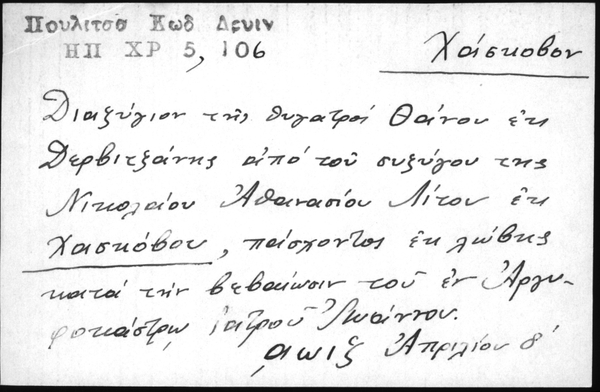 Πουλιτσα Κωδ Δρυιν
ΗΠ ΧΡ 5, 106
Χάσκοβον
Διαζύγιον τῆς θυγατρὸς Θάνου ἐκ
Δερβιτζάνης ἀπὸ τοῦ συζύγου της
Νικολαίου Ἀθανασίου Λίτου ἐκ
Χασκόβου, πάσχοντος ἐκ λώβης
κατὰ τὴν βεβαίωσιν τοῦ ἐν Ἀργυ-
ροκάστρῳ ἰατροῦ
αωιζ Ἀπριλίου δ'